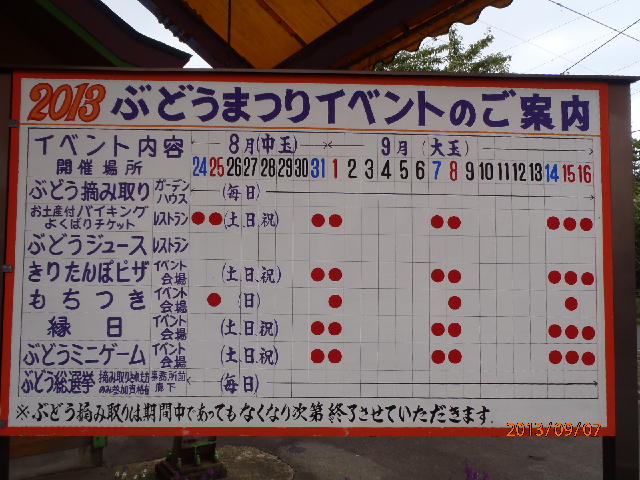 2013 ぶどうまつりイベントのご案内
イベント内容 8月(中玉) 9月(大玉)
開催場所 24 25 26 27 28 29 30 31 1 2 3 4 5 6 7 8 9 10 11 12 13 14 15 16
ぶどう摘み取り ガーデンハウス (毎日)
お土産付バイキング
よくばりチケット レストラン (土,日,祝)
ぶどうジュース レストラン
きりたんぽピザ イベント会場 (土,日,祝)
もちつき イベント会場 (日)
縁日 イベント会場 (土,日,祝)
ぶどうミニゲーム イベント会場 (土,日,祝)
ぶどう総選挙 (毎日)
※ぶどう摘み取りは期間中であってもなくなり次第終了させていただきます.
2013/09/07